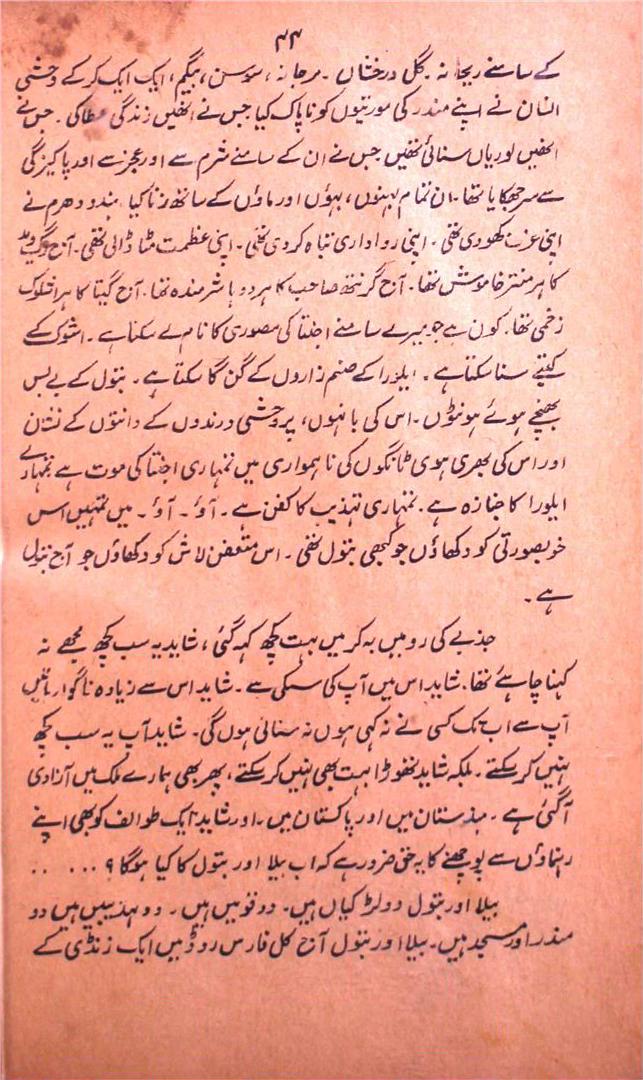 ۴۴
کے سامنے ریحانہ گل درخشاں ۔ مرجانہ، سوسن، بیگم، ایک ایک کر کے وحشی
انسان نے اپنے مندر کی مورتیوں کو ناپاک کیا جس نے انھیں زندگی عطا کی ۔ جس نے
انھیں لوریاں سنائی تھیں جس نے ان کے سامنے شرم سے اور عجز سے اور پاکیزگی
سے سر جھکایا تھا ۔ ان تمام بہنوں، بہوؤں اور ماؤں کے ساتھ زنا کیا ۔ ہندو دھرم نے
اپنی عزت کھو دی تھی ۔ اپنی رواداری تباہ کر دی تھی ۔ اپنی عظمت مٹا ڈالی تھی ۔ آج رگ وید
کا ہر منتر خاموش تھا ۔ آج گرنتھ صاحب کا ہر دوہا شرمندہ تھا ۔ آج گیتا کا ہر اشلوک
زخمی تھا ۔ کون ہے جو میرے سامنے اجنتا کی مصوری کا نام لے سکتا ہے ۔ اشوک کے
کتبے سنا سکتا ہے ۔ ایلورا کے صنم زاروں کے گن گا سکتا ہے ۔ بتول کے بے بس
بھنچے ہوئے ہونٹوں ۔ اس کی بانہوں، پر وحشی درندوں کے دانتوں کے نشان
اور اس کی بھری ہوی ٹانگوں کی ناہمواری میں تمہاری اجنتا کی موت ہے تمہارے
ایلورا کا جنازہ ہے ۔ تمہاری تہذیب کا کفن ہے ۔ آؤ ۔ آؤ ۔ میں تمہیں اس
خوبصورتی کو دکھاؤں جو کبھی بتول تھی ۔ اس متعفن لاش کو دکھاؤں جو آج بتول
ہے ۔
جذبے کی رو میں بہ کر میں بہت کچھ کہہ گئی ، شاید یہ سب کچھ مجھے نہ
کہنا چاہئے تھا ۔ شاید اس میں آپ کی سبکی ہے ۔ شاید اس سے زیادہ ناگوار باتیں
آپ سے اب تک کسی نے نہ کہی ہوں نہ سنائی ہوں گی ۔ شاید آپ یہ سب کچھ
نہیں کر سکتے ۔ بلکہ شاید تھوڑا بہت بھی نہیں کر سکتے ، پھر بھی ہمارے ملک میں آزادی
آ گئی ہے ۔ ہندستان میں اور پاکستان میں ۔ اور شاید ایک طوائف کو بھی اپنے
رہناؤں سے پوچھنے کا یہ حق ضرور ہے کہ اب بیلا اور بتول کا کیا ہوگا ؟ . . . . .
بیلا اور بتول دو لڑکیاں ہیں ۔ دو قومیں ہیں ۔ دو تہذیبیں ہیں دو
مندر اور مسجد ہیں ۔ بیلا اور بتول آج کل فارس روڈ میں ایک رنڈی کے